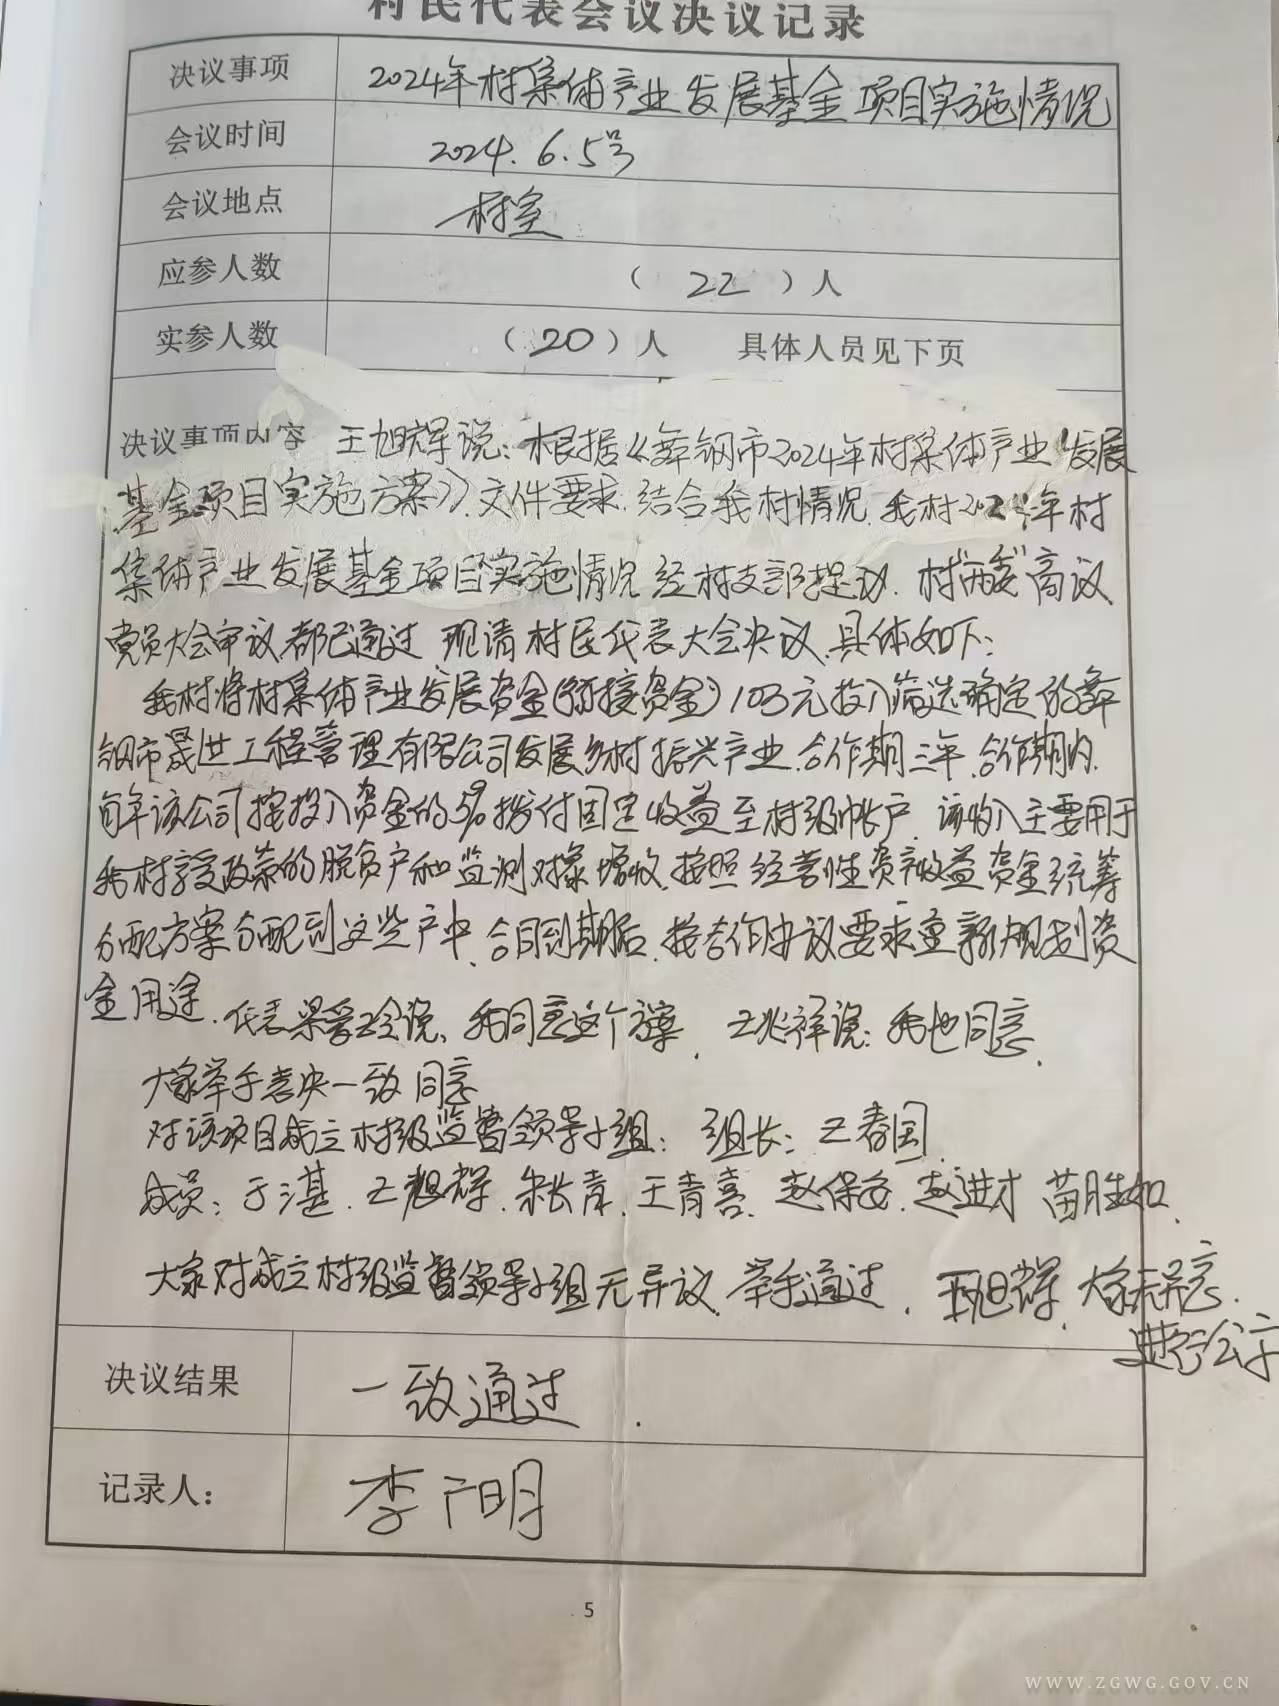 村民代表会议决议记录
决议事项 2024年村集体产业发展基金项目实施情况
会议时间 2024.6.5号
会议地点 村室
应参人数 （ 22 ）人
实参人数 （20）人 具体人员见下页
决议事项内容 王旭辉说：根据《舞钢市2024年村集体产业发展
基金项目实施方案》文件要求.结合我村情况.我村2024年村
集体产业发展基金项目实施情况经村支部提议.村“两委”商议
党员大会审议都已通过 现请村民代表大会决议.具体如下：
我村将村集体产业发展资金(衔接资金)10万元投入筛选确定的舞
钢市晟世工程管理有限公司发展乡村振兴产业.合作期三年.合作期内.
每年该公司按投入资金的5%拨付固定收益至村级帐户.该收入主要用于
我村享受政策的脱贫户和监测对象增收.按照经营性资产收益资金统筹
分配方案分配到这些户中.合同到期后.按合作协议要求重新规划资
金用途.代表梁爱玲说、我同意这个方案.王兆祥说：我也同意.
大家举手表决一致同意
对该项目成立村级监督领导小组：组长：王春国.
成员：于湛.王旭辉.朱长岸.王青喜.赵保安.赵进才 苗胜如.
大家对成立村级监督领导小组无异议.举手通过.王旭辉.大家无异意.
进行公示
决议结果 一致通过.
记录人： 李阳明
5
WWW.ZGWG.GOV.CN